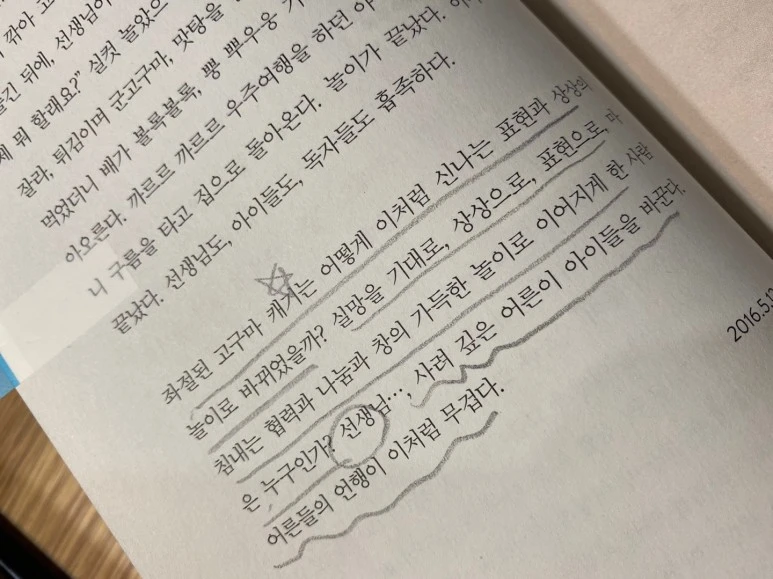 깎아
긴 뒤에, 선생님이
뭐 할래요?" 실컷 놀았으
잘라, 튀김이며 군고구마, 맛탕을
먹었더니 배가 볼록볼록, 뽕 뿌우웅
아오른다. 까르르 까르르 우주여행을 하던
니 구름을 타고 집으로 돌아온다. 놀이가 끝났다.
끝났다. 선생님도, 아이들도, 독자들도 흡족하다.
좌절된 고구마 캐기는 어떻게 이처럼 신나는 표현과 상상의
놀이로 바뀌었을까? 실망을 기대로, 상상으로, 표현으로, 마
침내는 협력과 나눔과 창의 가득한 놀이로 이어지게 한 사람
은 누구인가? 선생님…, 사려 깊은 어른이 아이들을 바꾼다.
어른들의 언행이 이처럼 무겁다.
2016.5.1